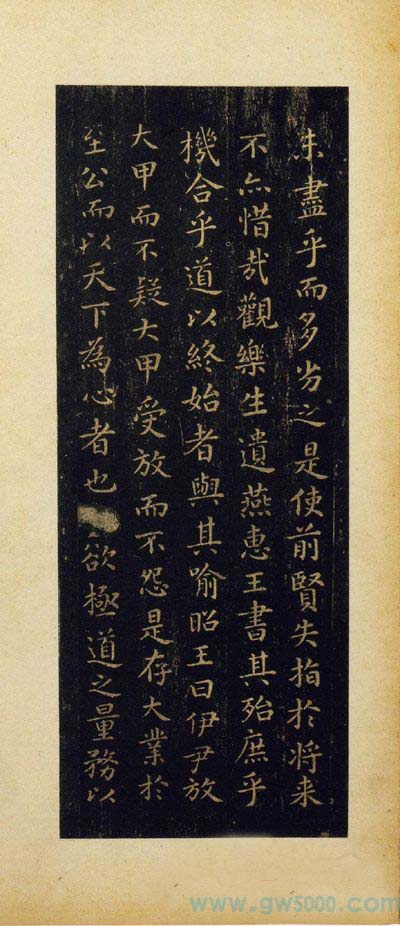 未盡乎而多劣之是使前賢失指於將来
不亦惜哉觀樂生遺燕惠王書其殆庶乎
機合乎道以終始者與其喻昭王曰伊尹放
大甲而不疑大甲受放而不怨是存大業於
至公而以天下為心者也欲極道之量務以
www.gw5000.com